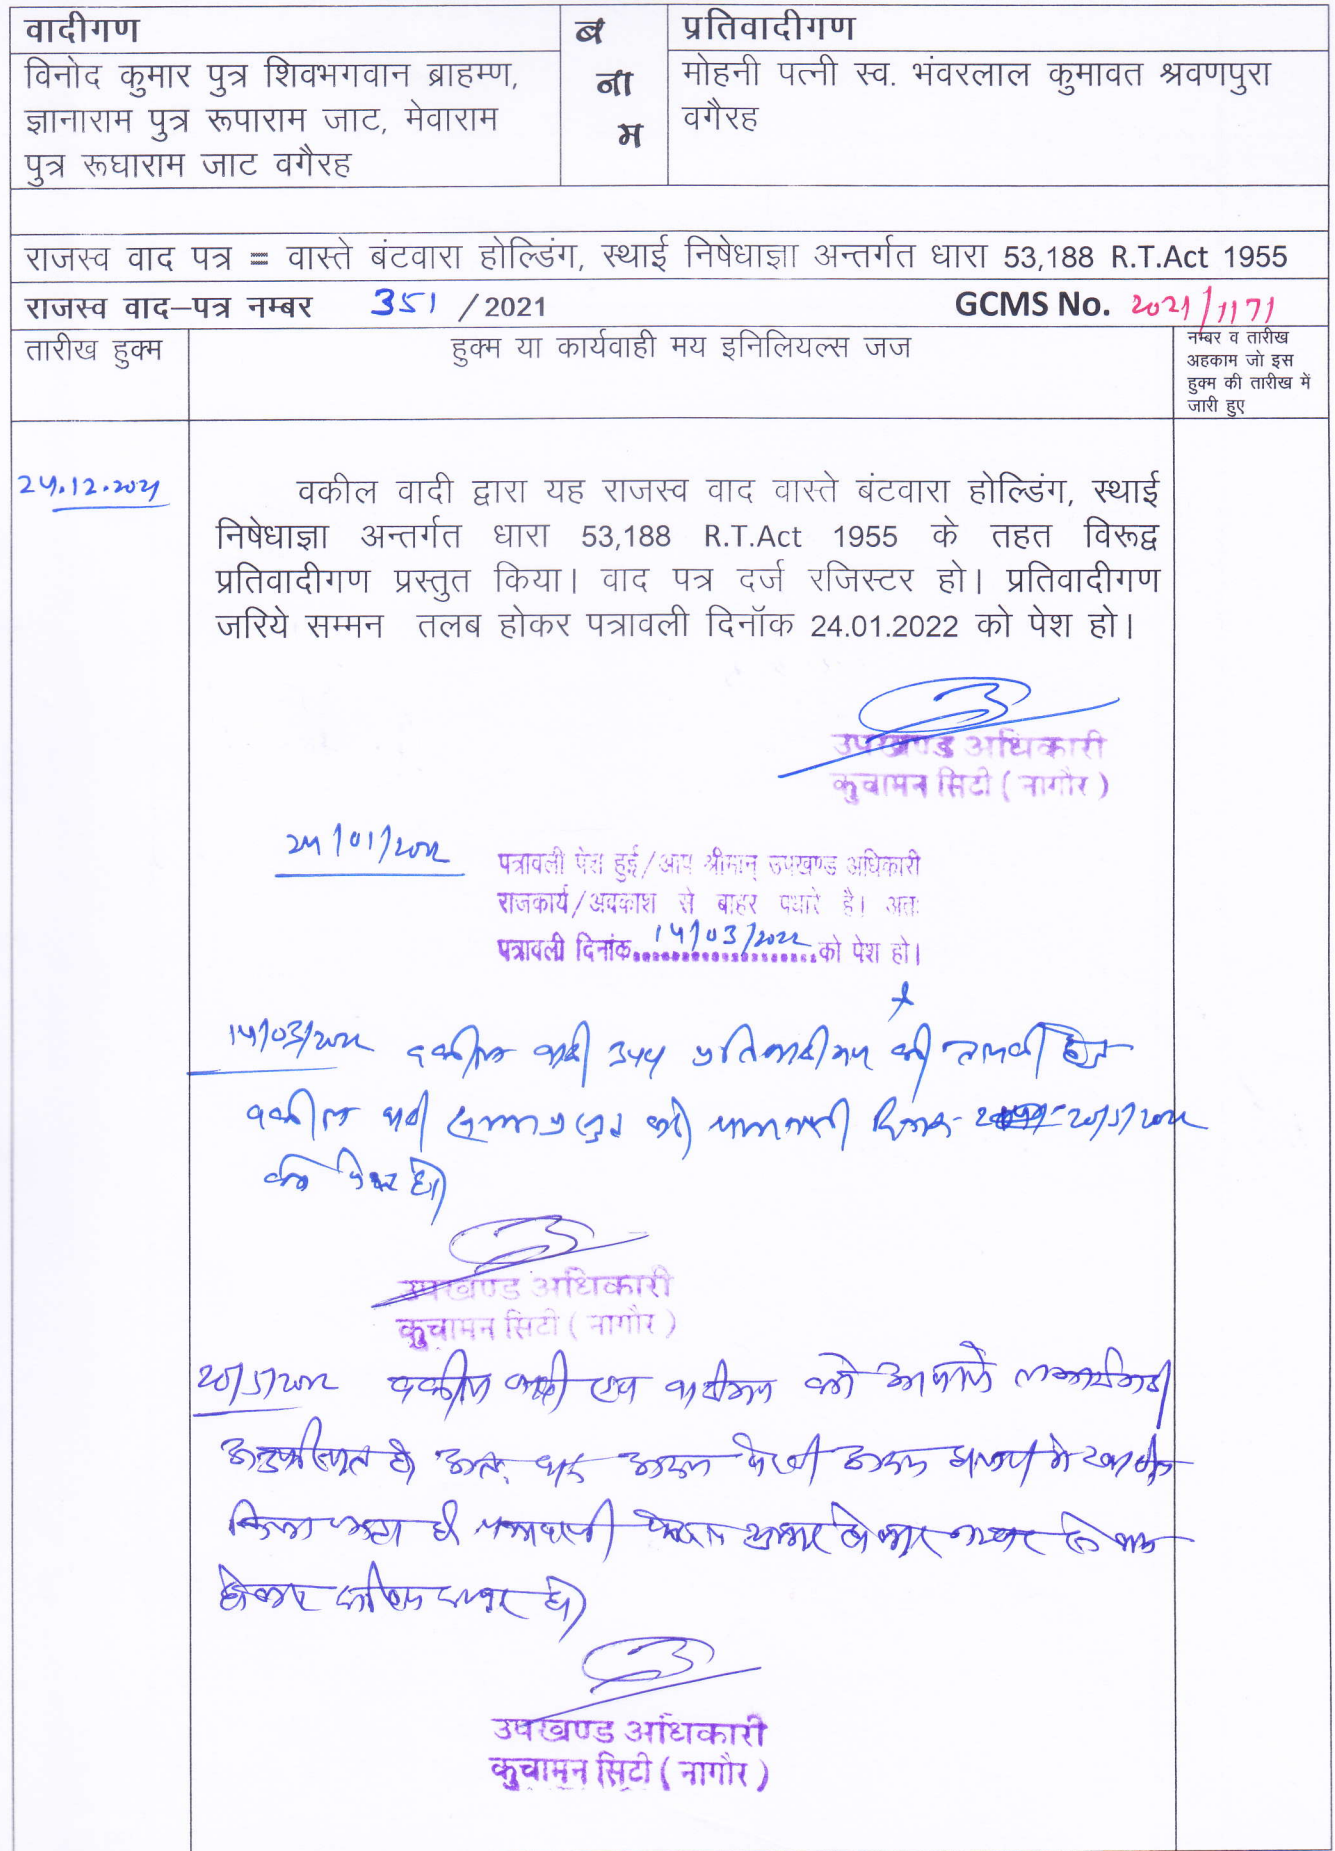 वादीगण
ब
ना
म
प्रतिवादीगण
विनोद कुमार पुत्र शिवभगवान ब्राहम्ण,
ज्ञानाराम पुत्र रूपाराम जाट, मेवाराम
पुत्र रूघाराम जाट वगैरह
मोहनी पत्नी स्व. भंवरलाल कुमावत श्रवणपुरा
वगैरह
राजस्व वाद पत्र = वास्ते बंटवारा होल्डिंग, स्थाई निषेधाज्ञा अन्तर्गत धारा 53,188 R.T.Act 1955
राजस्व वाद–पत्र नम्बर 351 / 2021 GCMS No. 2021/1171
तारीख हुक्म
हुक्म या कार्यवाही मय इनिलियल्स जज
नम्बर व तारीख
अहकाम जो इस
हुक्म की तारीख में
जारी हुए
24.12.2021
वकील वादी द्वारा यह राजस्व वाद वास्ते बंटवारा होल्डिंग, स्थाई
निषेधाज्ञा अन्तर्गत धारा 53,188 R.T.Act 1955 के तहत विरूद्व
प्रतिवादीगण प्रस्तुत किया। वाद पत्र दर्ज रजिस्टर हो। प्रतिवादीगण
जरिये सम्मन तलब होकर पत्रावली दिनॉक 24.01.2022 को पेश हो।
उपखण्ड अधिकारी
कुचामन सिटी ( नागौर )
24/01/2022
पत्रावली पेश हुई/आप श्रीमान् उपखण्ड अधिकारी
राजकार्य/अवकाश से बाहर पधारे है। अतः
पत्रावली दिनांक 14/03/2022 को पेश हो।
14/03/2022 वकील वादी उपप्रतिवादीगण की तलबी हेतु
वकील वादी प्रस्तुत करे पत्रावली दिनांक 20/5/2022
को पेश हो
उपखण्ड अधिकारी
कुचामन सिटी ( नागौर )
20/5/2022 वकील वादी एवं वादीगण को
अनुपस्थित है अतः वाद अदम पैरवी अदम में खारिज
किया जाता है पत्रावली फैसल शुमार होकर नम्बर से कम
होकर दाखिल दफ्तर हो
उपखण्ड अधिकारी
कुचामन सिटी ( नागौर )